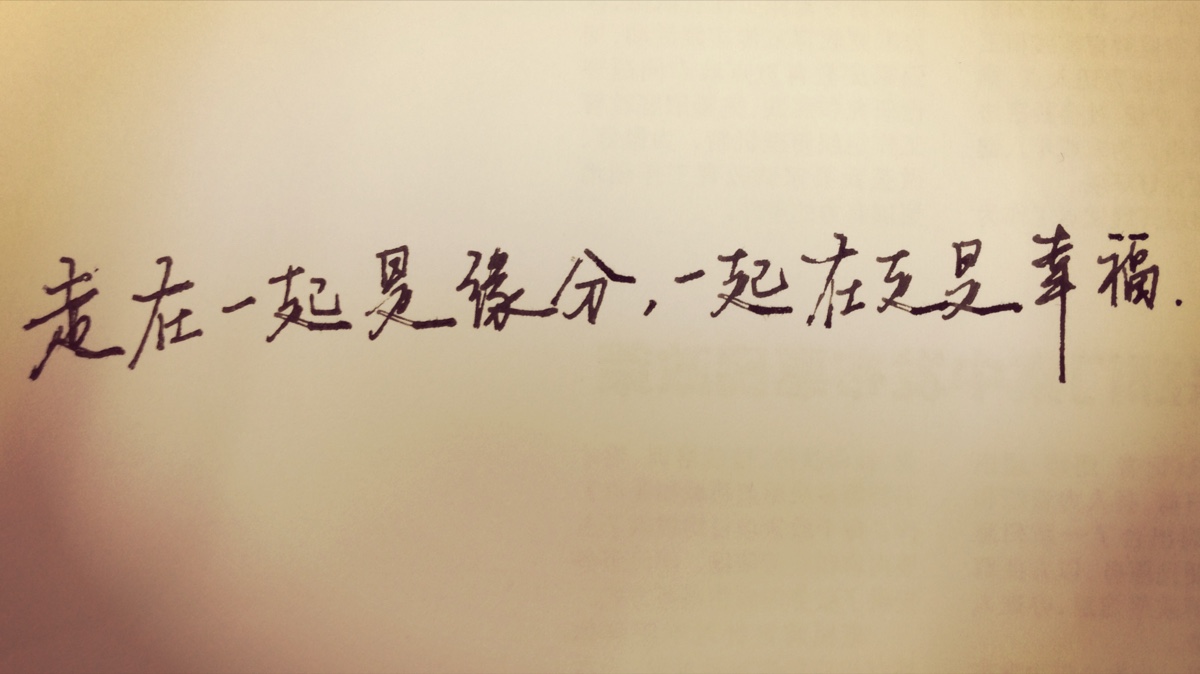 走在一起是缘分,一起在走是幸福.